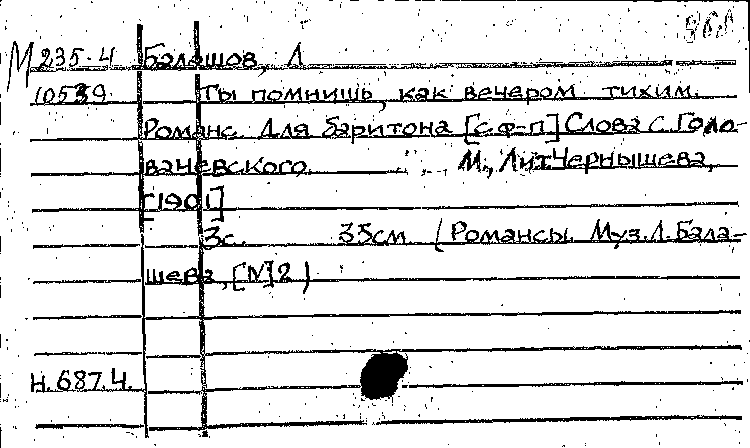 М 235-4 Балашов, Л
10539 Ты помнишь, как вечером тихим.
Романс. Для баритона [с ф-п] Слова С. Голо-
вачевского. М., Лит. Чернышева,
[1901]
3с. 35см (Романсы. Муз. Л. Бала-
шева, [№] 2)
Н. 687.Ч.